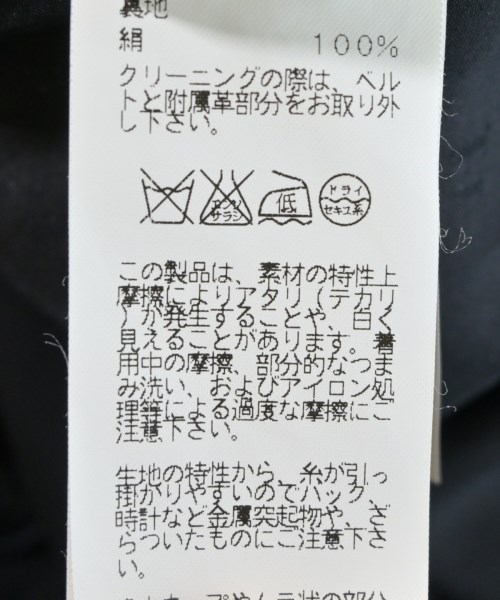 裏地
絹 100%
クリーニングの際は、ベル
トと附属革部分をお取り外
し下さい。
エンソ
サラシ
低
ドライ
セキユ系
この製品は、素材の特性上
摩擦によりアタリ(テカリ
)が発生することや、白く
見えることがあります。着
用中の摩擦、部分的なつま
み洗い、およびアイロン処
理等による過度な摩擦にご
注意下さい。
生地の特性から、糸が引っ
掛かりやすいのでバック、
時計など金属突起物や、ざ
らついたものにご注意下さ
い。